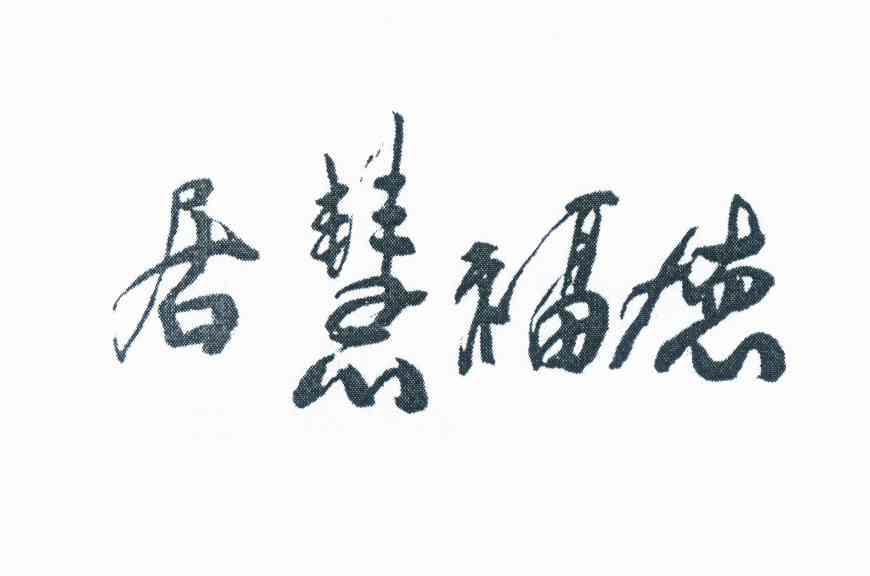 德福慧居